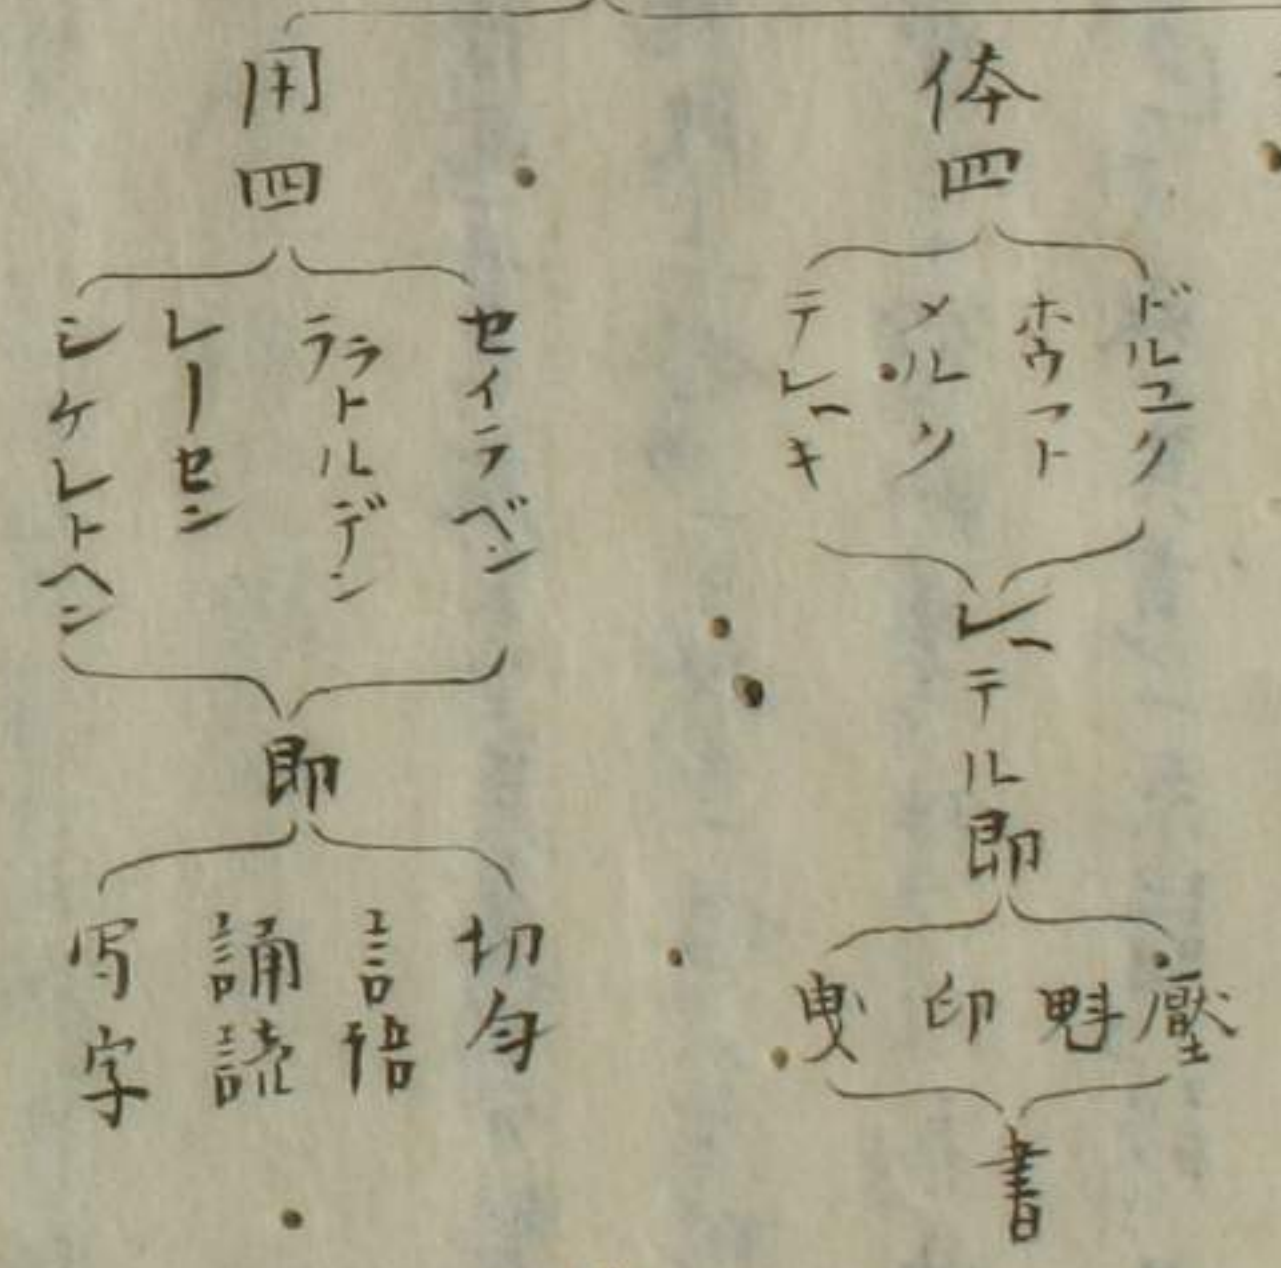 体四
ドルユク
ホウフト
メルク
テレーキ
レーテル即
壓
魁
印
曳
書
用四
セイラベン
ラ
ラトルデン
レーセン
シケレトヘン
即
切匀
言
語
誦読
写字